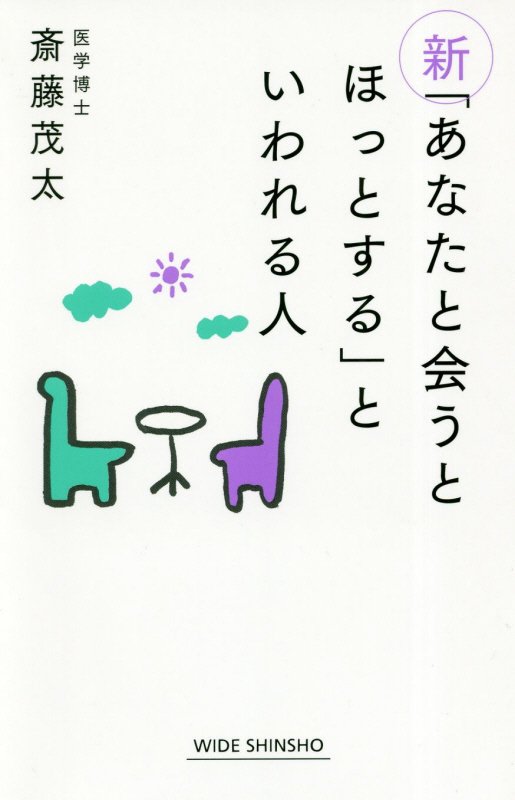 新「あなたと会うと
ほっとする」と
いわれる人
医学博士
斎藤茂太
WIDE SHINSHO